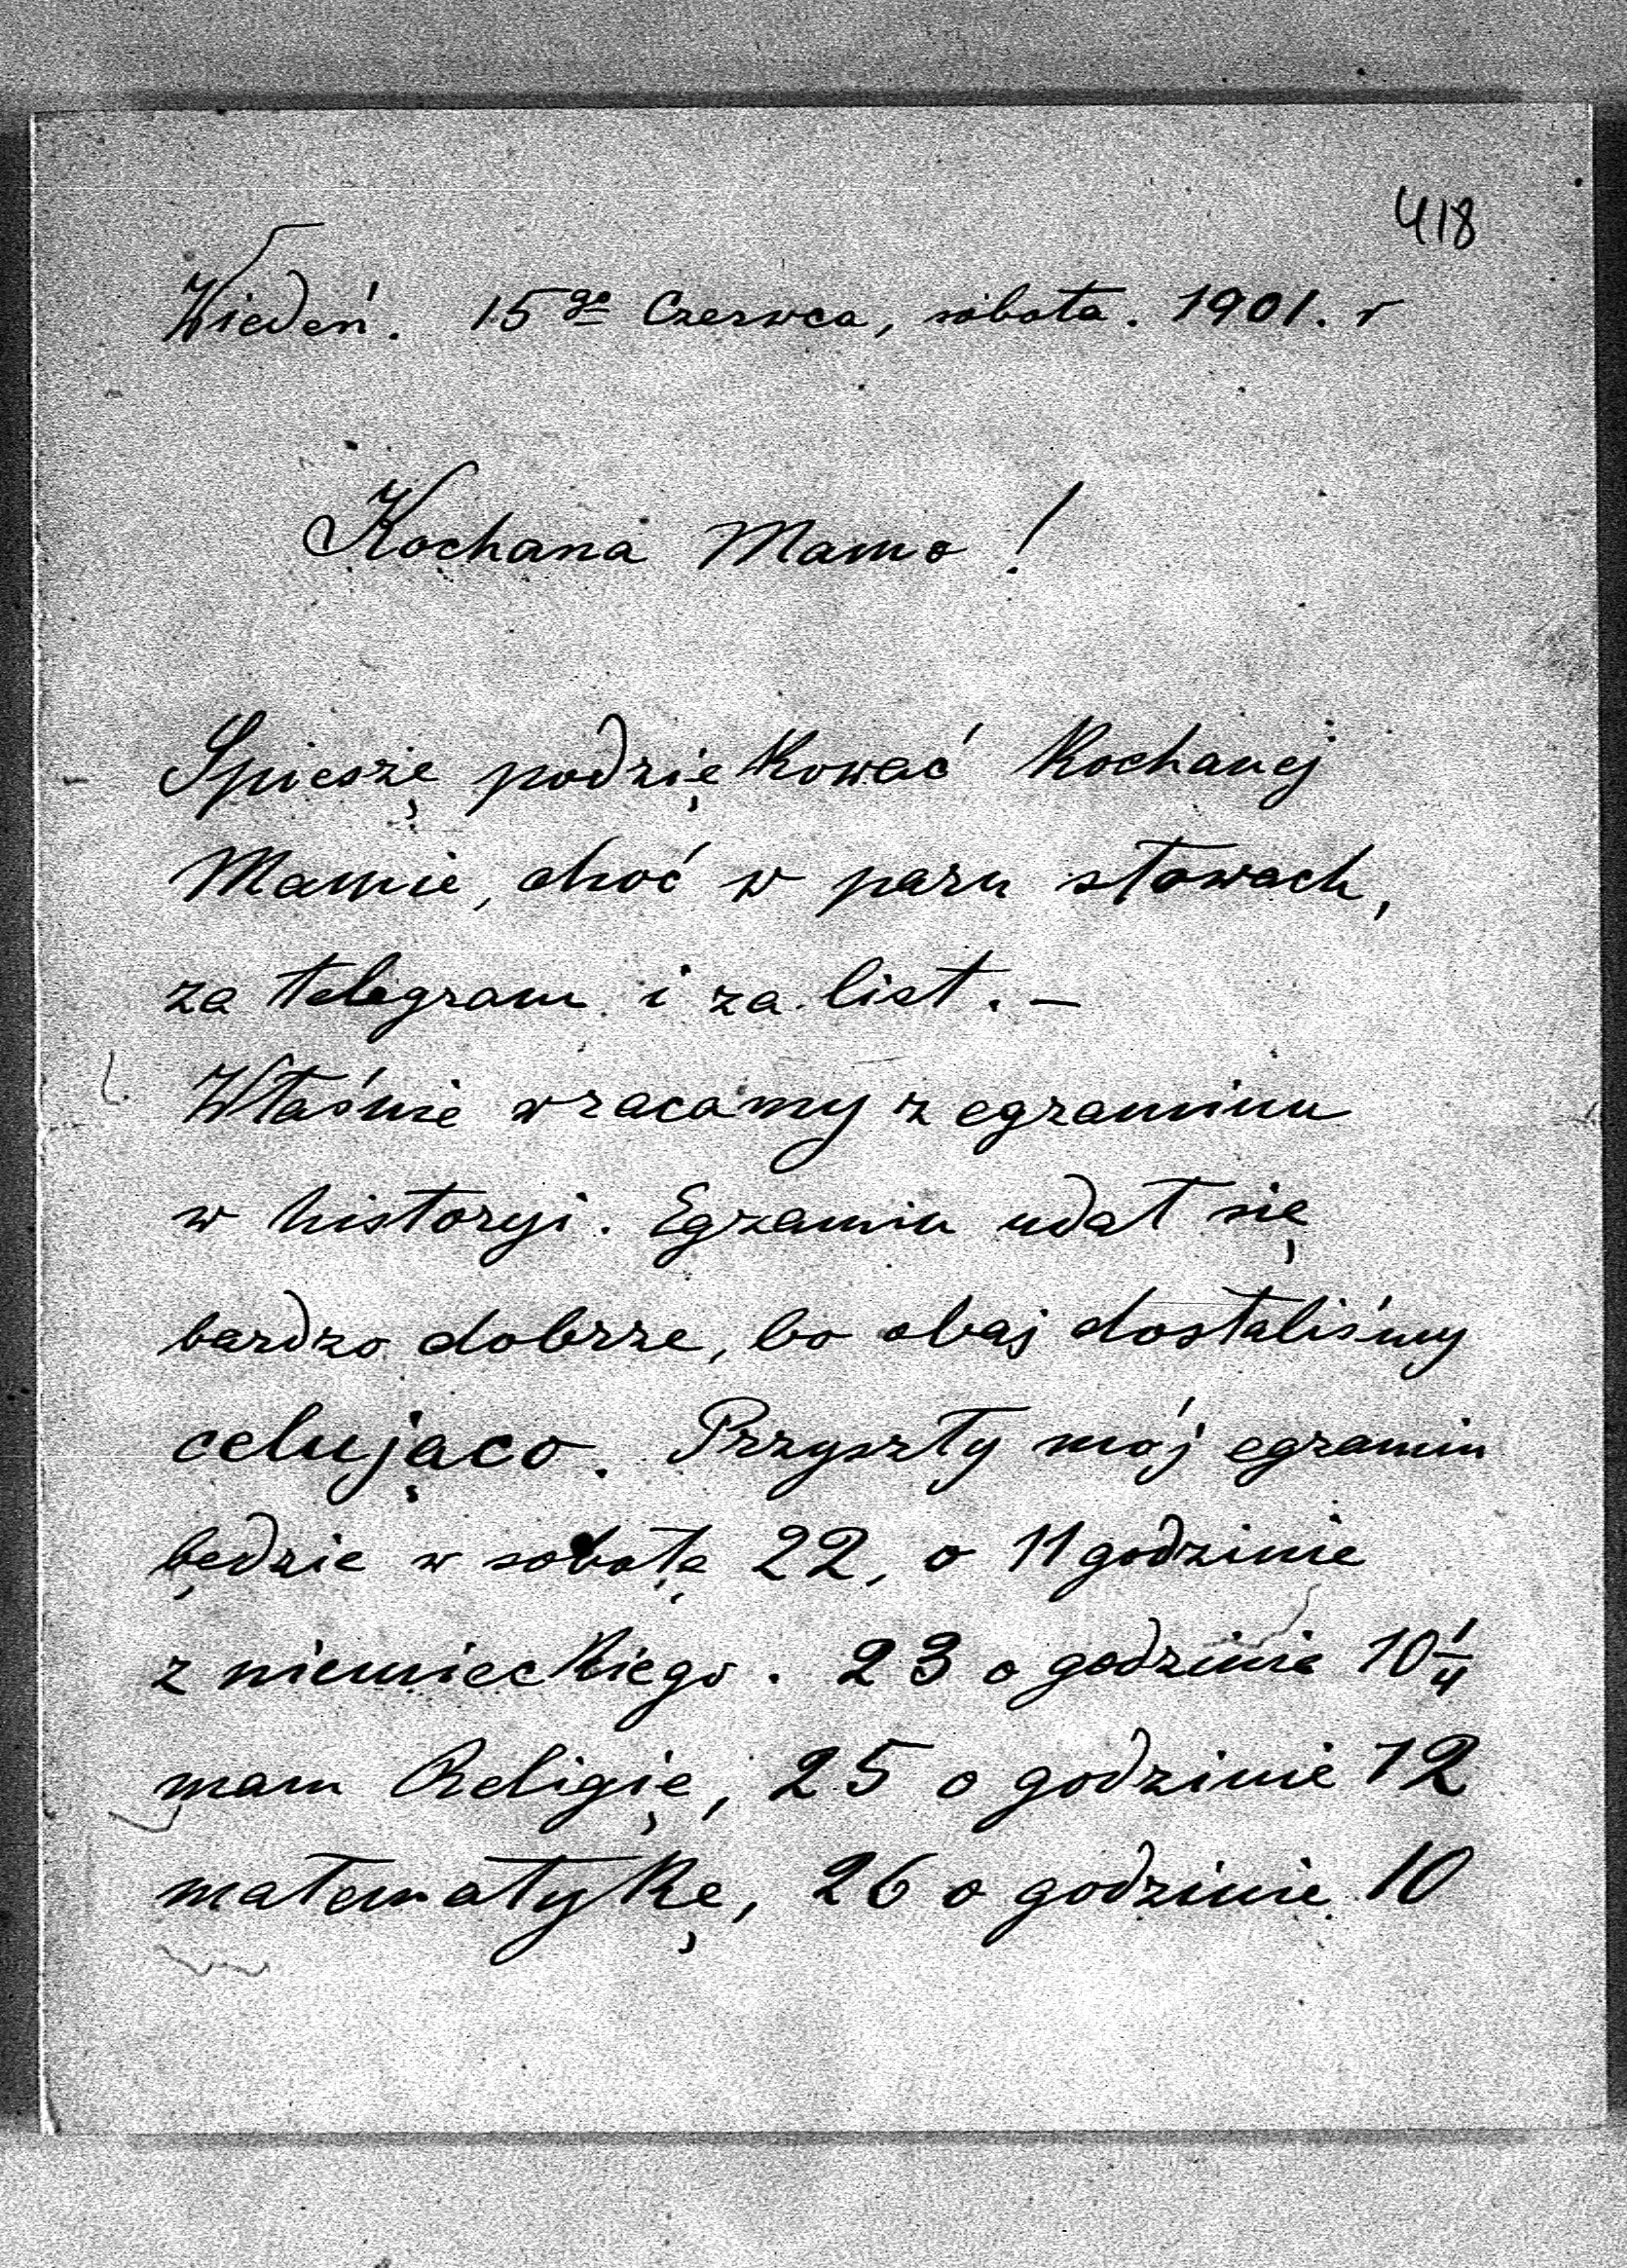 418
Wiedeń. 15go Czerwca, sobota. 1901. r
Kochana Mamo!
Spieszę podziękować Kochanej
Mamie, choć w paru słowach,
za telegram i za list. –
Właśnie wracamy z egzaminu
w historyi. Egzamin udał się
bardzo dobrze, bo obaj dostaliśmy
celująco. Przyszły mój egzamin
będzie w sobotę 22, o 11 godzinie
z niemieckiego. 23 o godzinie 10 1/4
mam Religię, 25 o godzinie 12
matematykę, 26 o godzinie 10